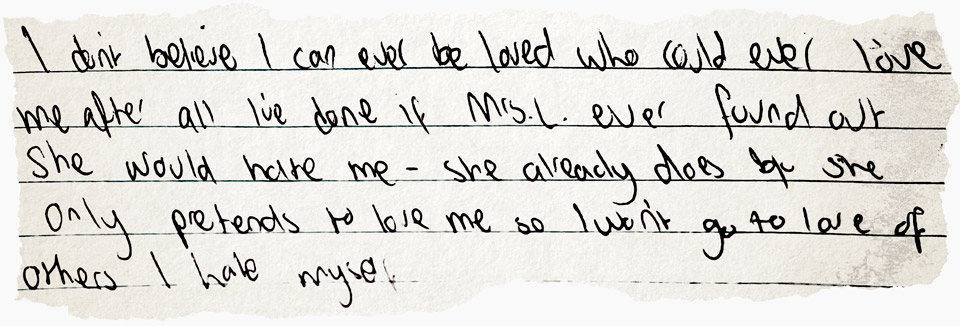 I don't believe I can ever be loved who could ever love
me after all I've done if Mrs. L. ever found out
She would hate me - she already does she
only pretends to love me so I won't go to love of
others I hate mysel